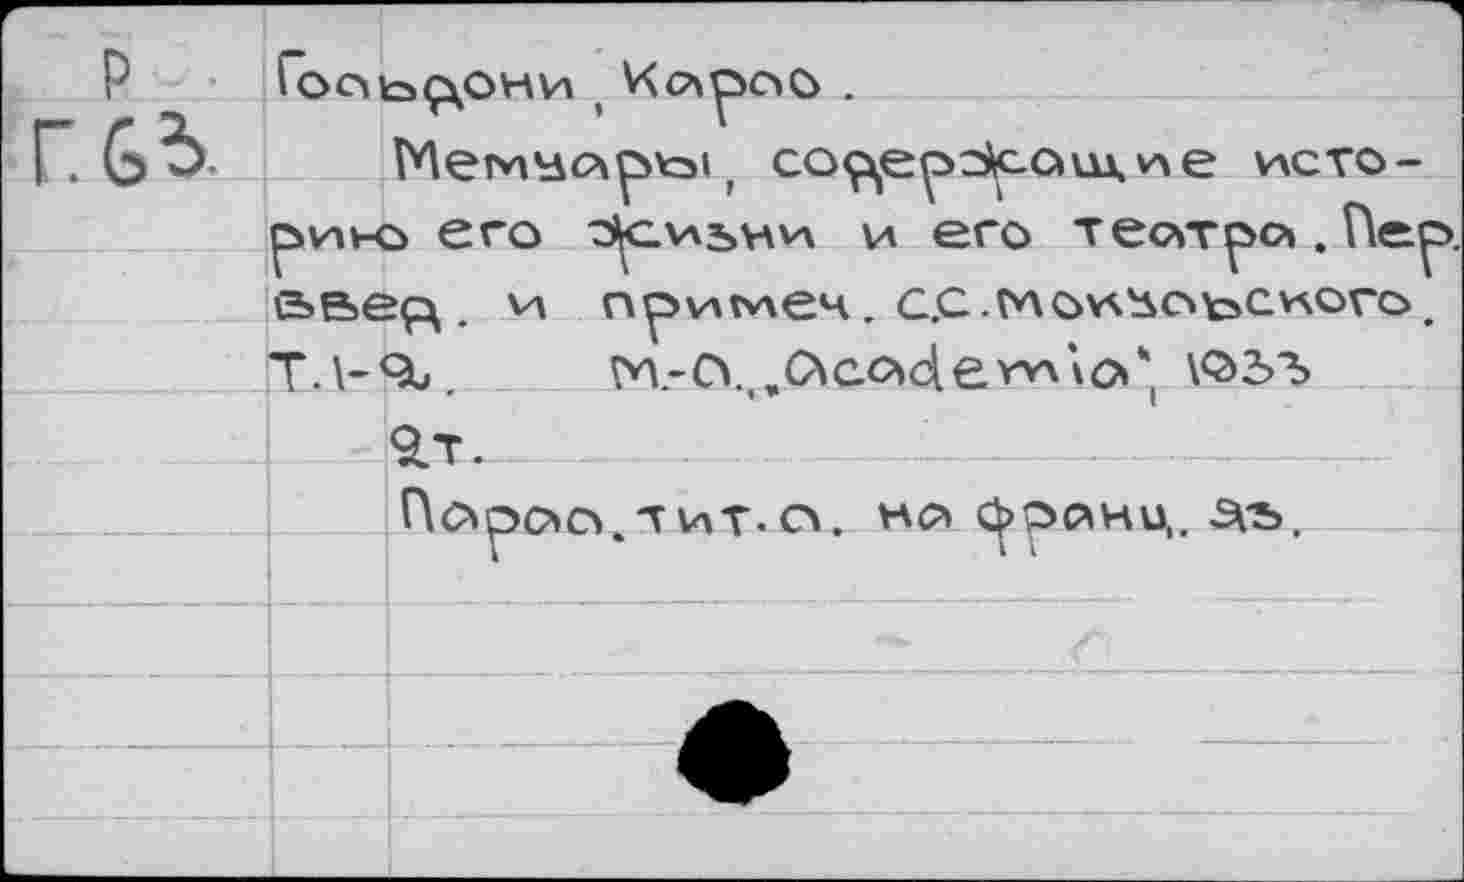 Р
Г.63.
Гольдони, Карло.
Мемуары, содержащие исто-
рию его жизни и его театра. Пер.
введ. и примеч. С.С.Мокульского.
Т.1-2. М.-Л., „Academia", 1933
2т.
Парал. тит.л. на франц. яз.